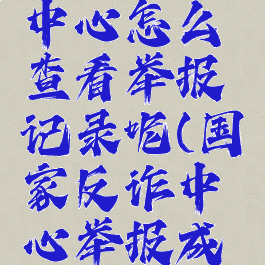 中心怎么
查看举报
记录呢(国
家反诈中
心举报成